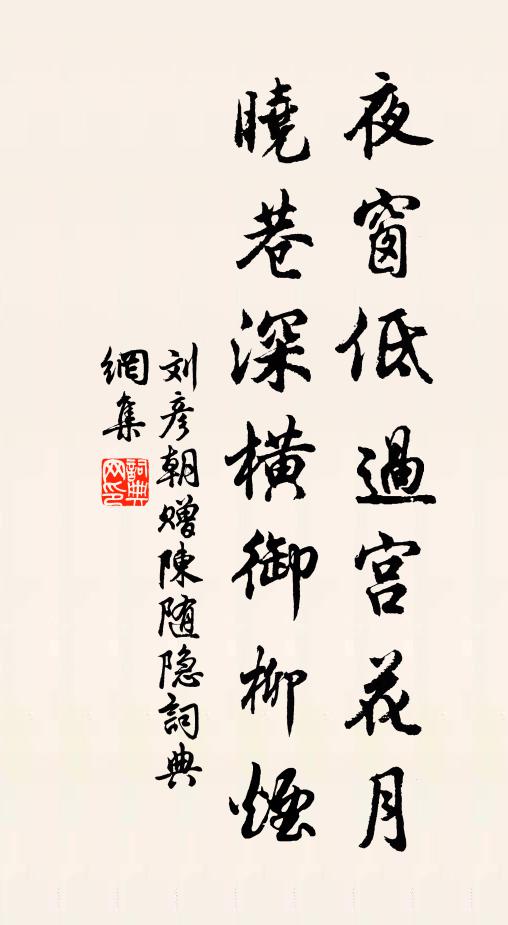 夜窗低過宫花月
曉巷深横御柳煙
刘彦朝赠陳随隐詞典
網集
詞典網印